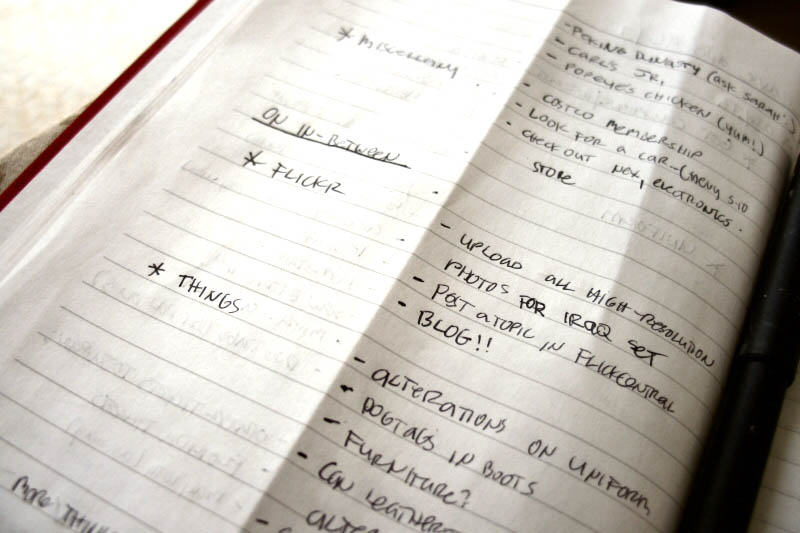 - PEKING DYNASTY (ASK SARAH!)
- CARL'S JR,
- POPEYE'S CHICKEN (YUM!)
* MISCELLANY
- COSTCO MEMBERSHIP
- LOOK FOR A CAR - CHEVY S-10
- CHECK OUT NEX, ELECTRONICS
STORE
ON IN-BETWEEN
* FLICKR
- UPLOAD ALL HIGH-RESOLUTION
PHOTOS FOR IRAQ SET
- POST A TOPIC IN FLICKCENTRAL
- BLOG!!
* THINGS
- ALTERATIONS ON UNIFORM
- DOGTAGS IN BOOTS
- FURNITURE?
- CAN LEATHER
MORE